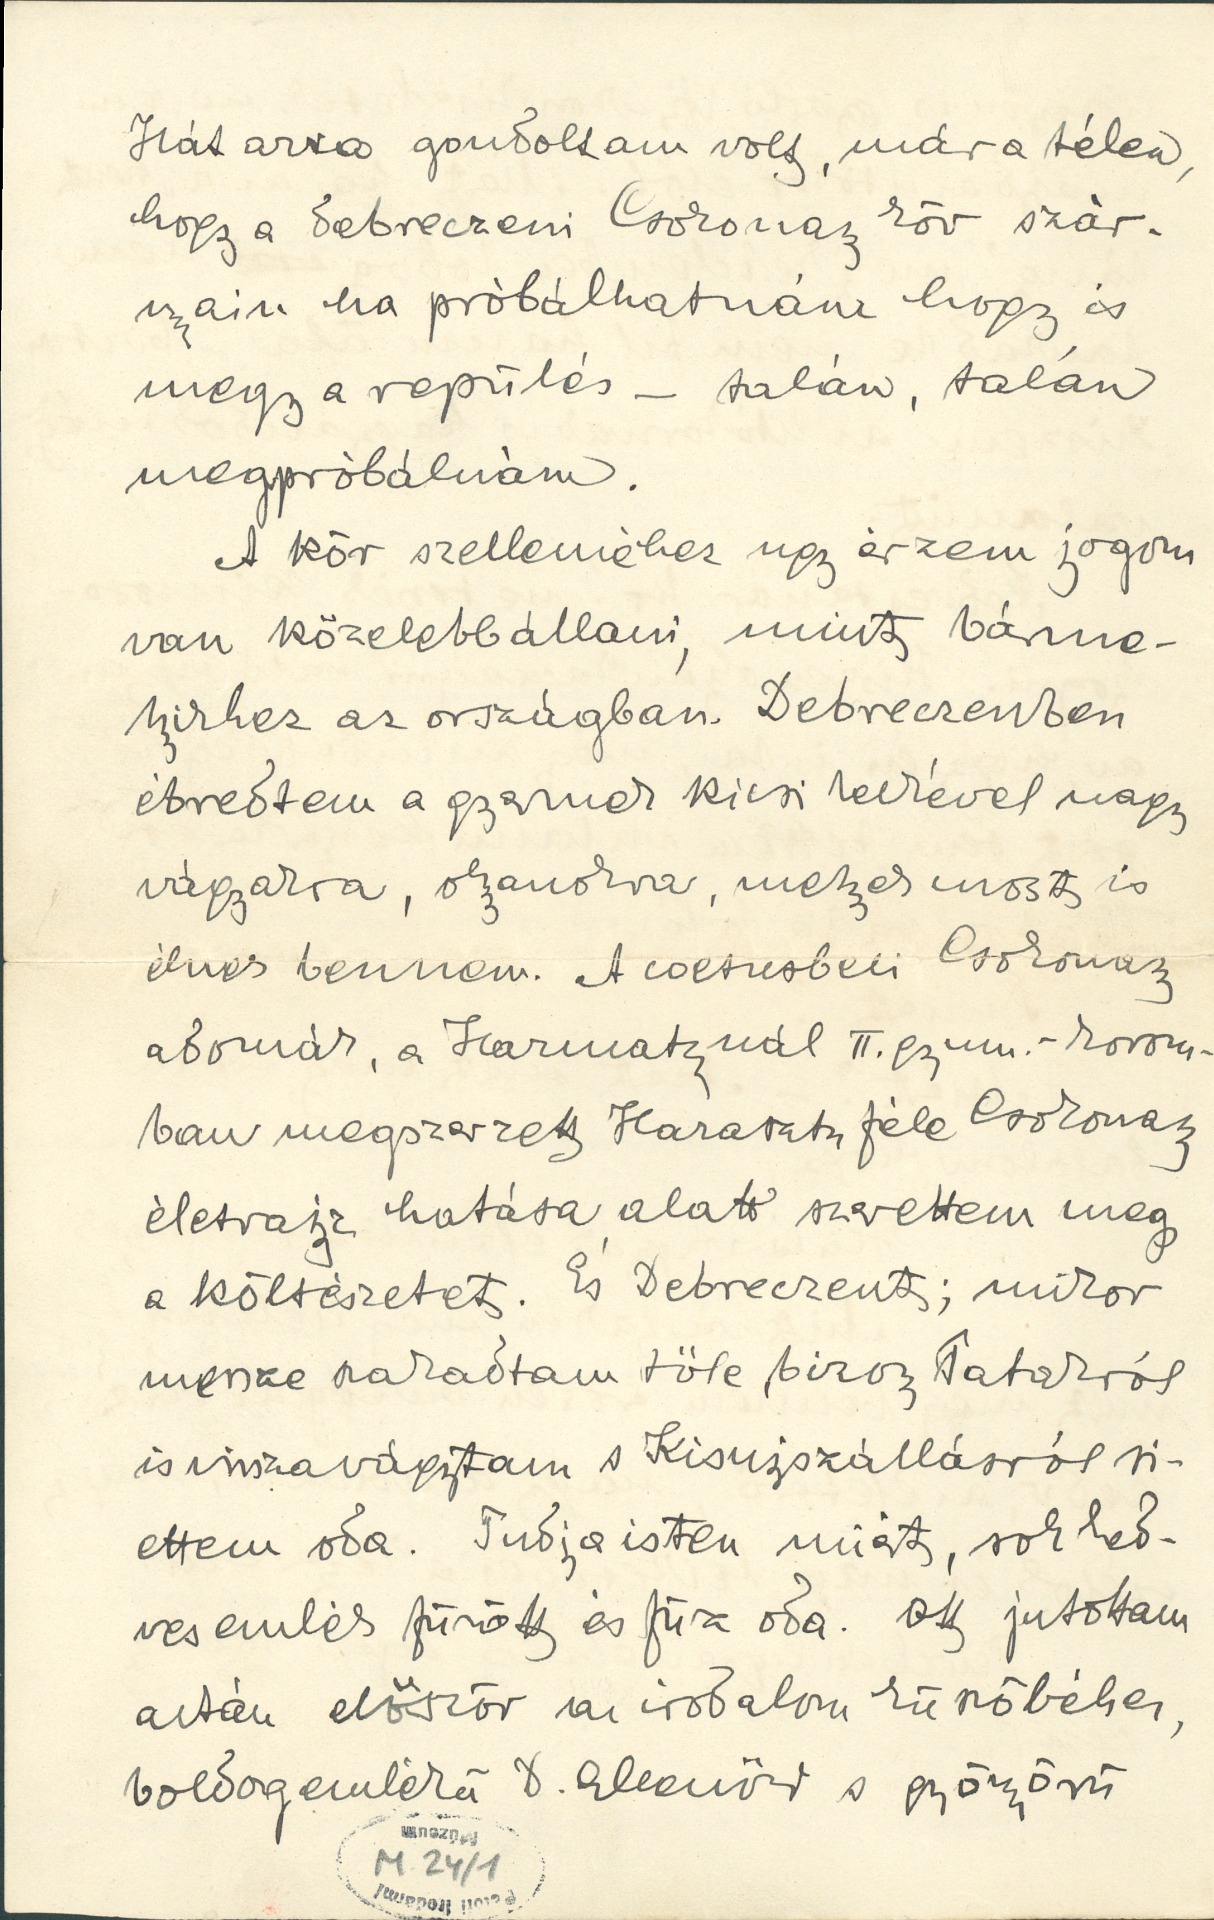 Hát arra gondoltam volt, már a télen,
hogy a debreczeni Csokonay kör szár-
nyain ha próbálhatnám hogy is
megy a repülés – talán, talán
megpróbálnám.
A kör szelleméhez ugy érzem jogom
van közelebb állani, mint bárme-
lyikhez az országban. Debreczenben
ébredtem a gyermek kicsi lelkével nagy
vágyakra, olyanokra, melyek most is
élnek bennem. A Csokonay
adomák, a Harmathynál II. gymn.-korom-
ban megszerzett Haraszty féle Csokonay
életrajz hatása alatt szerettem meg
a költészetet. És Debreczent; mikor
messze szakadtam tőle, bizony Patakról
is visszavágytam s Kisujszállásról si-
ettem oda. Tudja isten miért, sok ked-
ves emlék fűzött és fűz oda. Ott jutottam
aztán először az irodalom küszöbéhez,
boldogemlékű D. s gyönyörű
M. 24/1
Petőfi Irodalmi
Múzeum